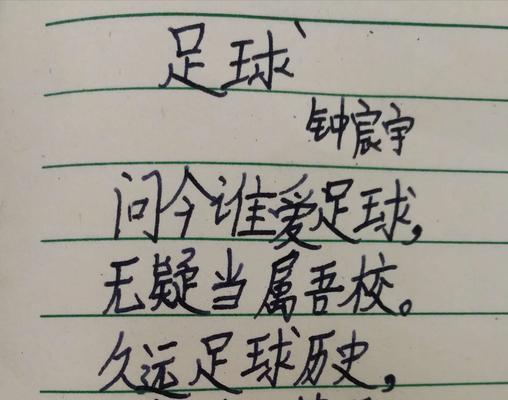 足球
钟宸宇
问今谁爱足球,
无疑当属吾校。
久远足球历史,